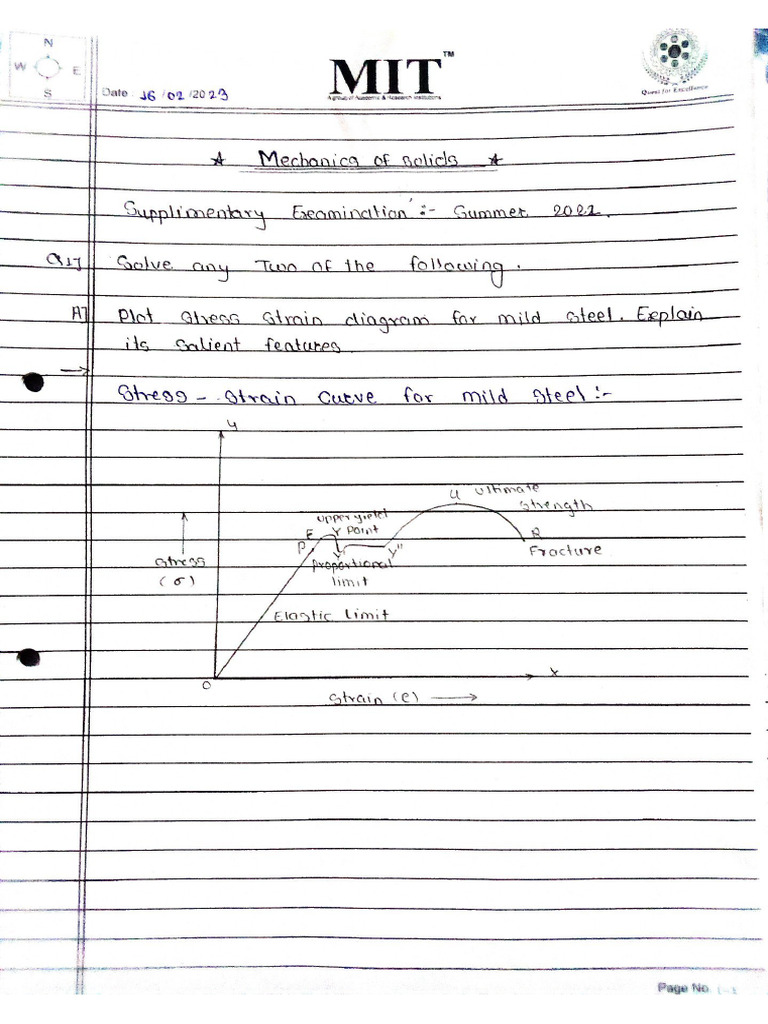 N
W E
S
Date : 16/02/2023
MIT™
A group of Academic & Research Institutions
Quest for Excellence
★ Mechanics of solids ★
Supplimentary Examination :- Summer 2022.
Q1] Solve any Two of the following.
A] Plot stress strain diagram for mild steel. Explain
its salient features.
→
Stress - strain curve for mild steel :-
y
U ultimate
strength
upper yield
E Y point
P Y' Y"
R
Fracture
stress
(σ)
proportional
limit
Elastic limit
O
x
Strain (e) →
Page No.